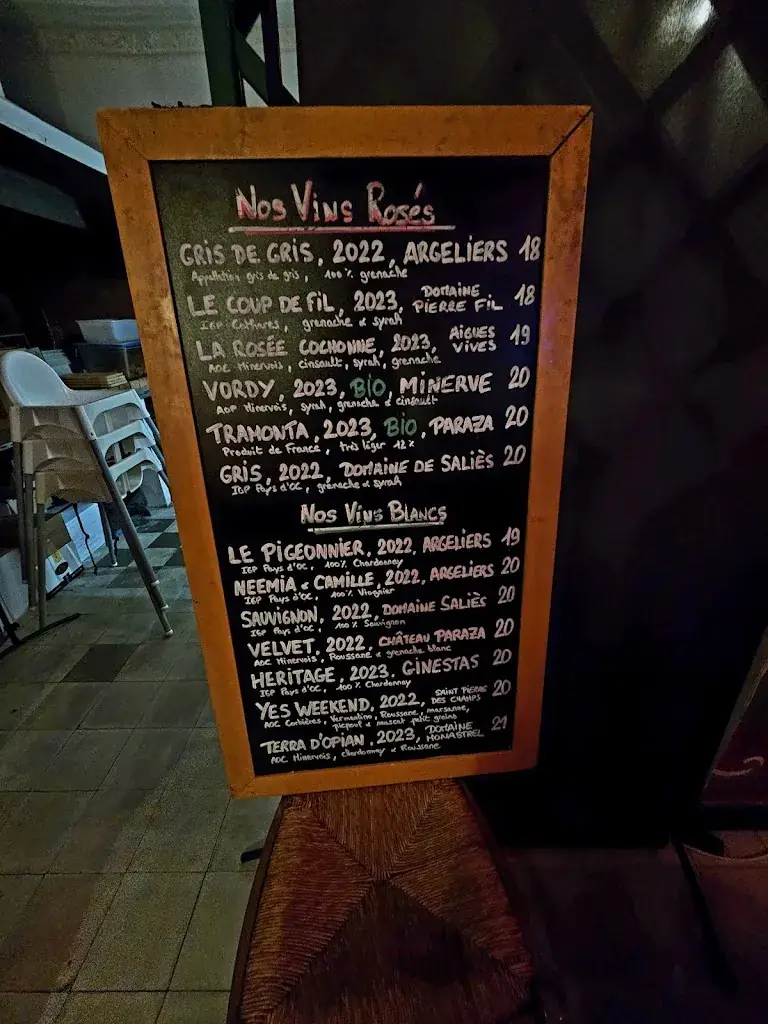 Nos Vins Rosés
GRIS DE GRIS, 2022, ARGELIERS 18
Appellation gris de gris, 100% grenache
LE COUP DE FIL, 2023, DOMAINE PIERRE FIL 18
IGP Cathares, grenache & syrah
LA ROSÉE COCHONNE, 2023, AIGUES VIVES 19
AOC Minervois, cinsault, syrah, grenache
VORDY, 2023, BIO, MINERVE 20
AOP Minervois, syrah, grenache & cinsault
TRAMONTA, 2023, BIO, PARAZA 20
Produit de France, très léger 12%
GRIS, 2022, DOMAINE DE SALIÈS 20
IGP Pays d'OC, grenache & syrah
Nos Vins Blancs
LE PIGEONNIER, 2022, ARGELIERS 19
IGP Pays d'OC, 100% Chardonnay
NEEMIA & CAMILLE, 2022, ARGELIERS 20
IGP Pays d'OC, 100% Viognier
SAUVIGNON, 2022, DOMAINE SALIÈS 20
IGP Pays d'OC, 100% Sauvignon
VELVET, 2022, CHÂTEAU PARAZA 20
AOC Minervois, Roussane & grenache blanc
HERITAGE, 2023, GINESTAS 20
IGP Pays d'OC, 100% Chardonnay
YES WEEKEND, 2022, SAINT PIERRE DES CHAMPS 20
AOC Corbières, Vermentino, Roussane, marsanne,
picpoul & muscat petit grains
TERRA D'OPIAN, 2023, DOMAINE MONASTREL 21
AOC Minervois, Chardonnay & Roussane